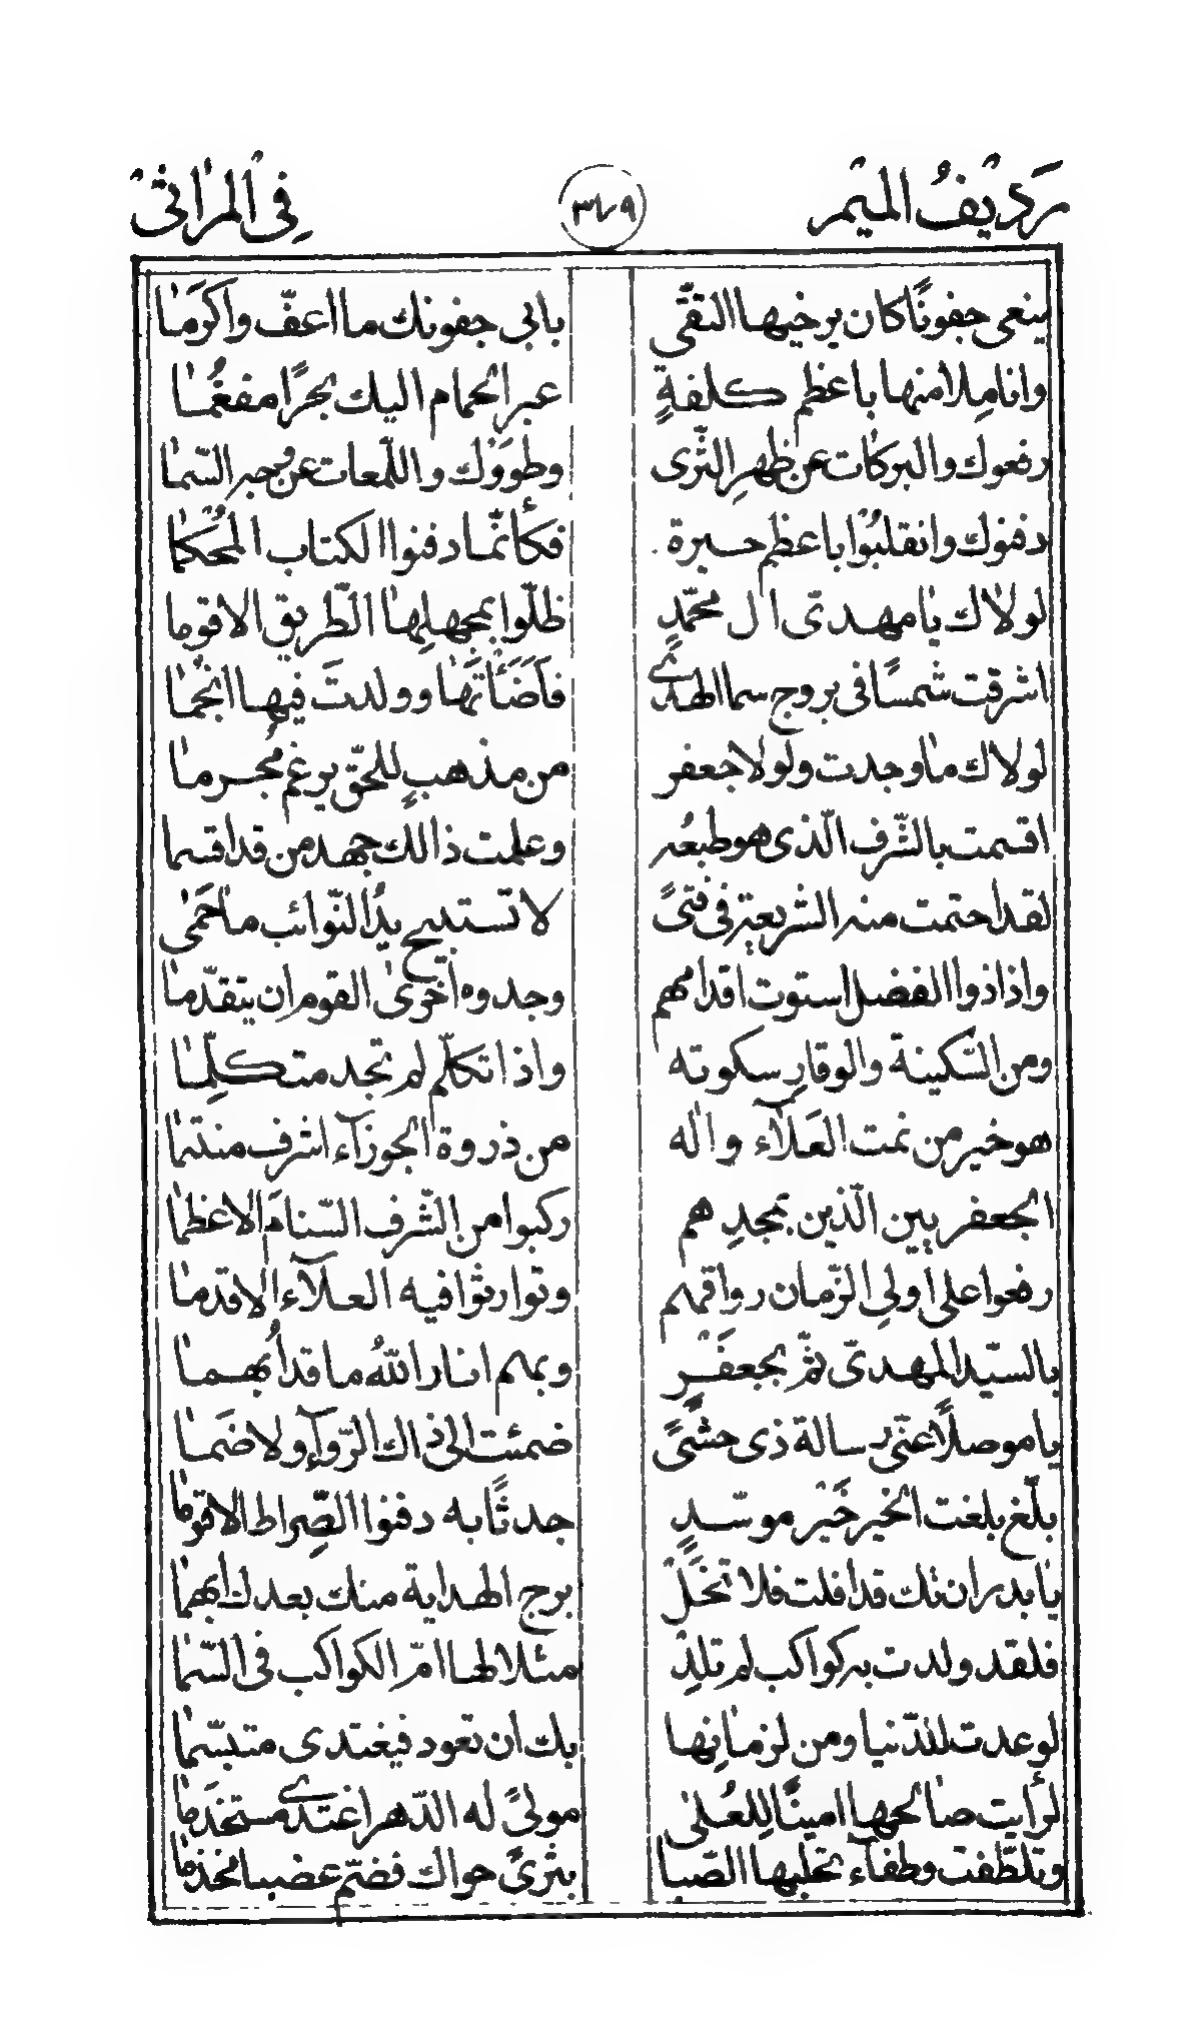 رديف الميم ٣٨٩ في المراثي
ينعى جفونًا كان يرخيها التقى بابى جفونك ما اعفّ واكرَمٰا
وانامِلا منها باعظم كلفةٍ عبر الحمام اليك بحرًا مفعُمٰا
رفعوك والبركات عن ظهرِ الثّرى وطووَوْك واللّمعات عن وجه السّمٰا
دفنوك وانقلبُوا باعظم حسرة فكأنّما دفنوا الكتاب المُحكمٰا
لولاك يٰا مهدىّ ال محمّدٍ ظلّوا بمجهلِهٰا الطّريق الاقوما
اشرقت شمسًا فى بروج سما الهدىٰ فاَضَأتَهٰا وولدتَ فيها انجمٰا
لولاك مٰا وجدت ولولا جعفر من مذهبٍ للحقّ يرغم مُجرمٰا
اقسمت بالشّرف الّذى هو طبعُه وعلمت ذالك جهد من قد اقسما
لقد احتمت منه الشريعة فى فتىً لا تستبيح يدُ النّوائب مٰا حَمٰى
واذا ذوا الفضل استوت اقدامهم وجدوه أخرىٰ القوم ان يتقدّمٰا
ومن السّكينة والوقارِ سكوته واذا تكلّم لم تجد متكلِّمٰا
هو خير من نمت العَلآء واله من ذروة الجوزآء اشرف منتمٰا
الجعفر يين الّذين بمجدِ هم ركبوا من الشّرف السّنامَ الاعظمٰا
رفعوا على اولِى الزّمان رواقهم وتوارثوا فيه العلآء الاقدمٰا
بالسيّد المهدىّ ثمّ بجعفَرٍ وبهم انار اللهُ ما قد أبهما
يا موصلًا عنّى رسالة ذى حشىً ضمئت الى ذاك الرّوآءِ ولا ضَمٰا
بلّغ بلغت الخير خَيْر موسّدٍ جدثًا به دفنوا الصِّراط الاقومٰا
يٰا بدر ان تك قد افلت فلا تخَلْ برج الهداية منك بعدك أبهمٰا
فلقد ولدت به كواكب لم تلِدْ مثلا لها امّ الكواكب فى السّمٰا
لو عدت للدّنيا ومن لزمٰانِها بك ان تعود فيغتدى متبسّمٰا
لرأيت صٰالحها امينًا لِلعُلىٰ مولىً له الدّهر اغتدىٰ مستخدَمٰا
وتلطّفت وطفآء تحلبها الصّبا بثرىً حواك فضمّ عضبا مخذمٰا